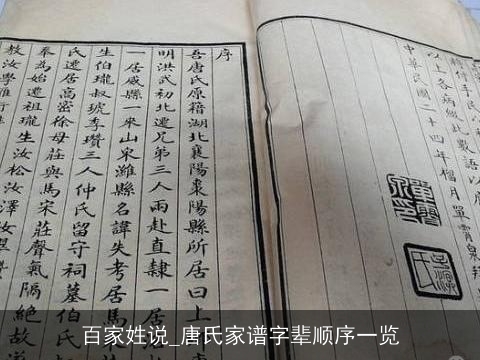 以上各病倣此敬語以
中華民國二十四年榴月單霄泉拜
序
吾唐氏原籍湖北襄陽棗陽縣所居曰上
明洪武初北遷兄弟三人兩赴直隸一居
一居威縣一來山宋濰縣名諱失考居馬
生伯瓏叔琥季瓚三人仲氏留守祠墓伯
氏遷居高密徐母莊與馬宋莊聲氣隔絕故
奉為始遷祖瓏生汝松汝澤汝
教汝學
百家姓说_唐氏家谱字辈顺序一览